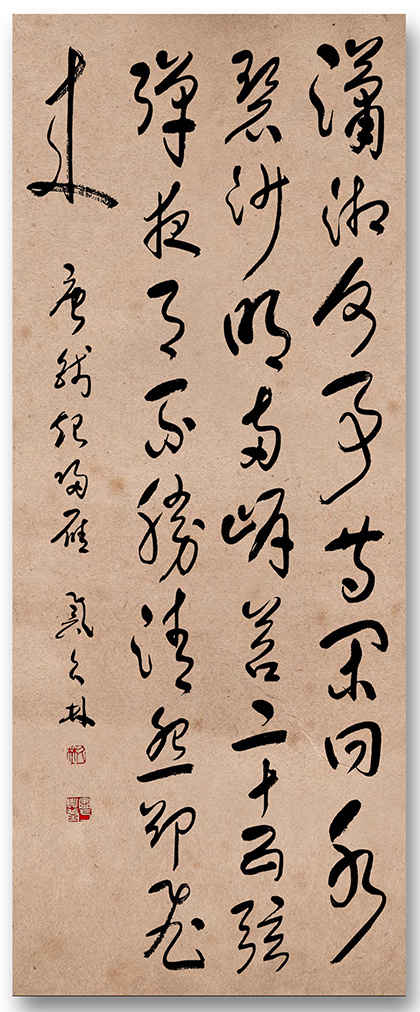 瀟湘何事等閒回水
碧沙明兩岸苔二十五弦
彈夜月不勝清怨卻飛
來
唐錢起歸雁